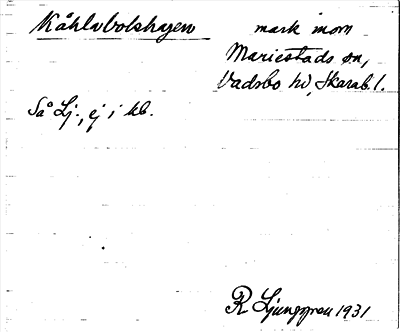 Kåhlabolshagen mark inom
Mariestads sn,
Vadsbo hd, Skarab. l.
Så Lj., ej i kb.
R Ljunggren 1931